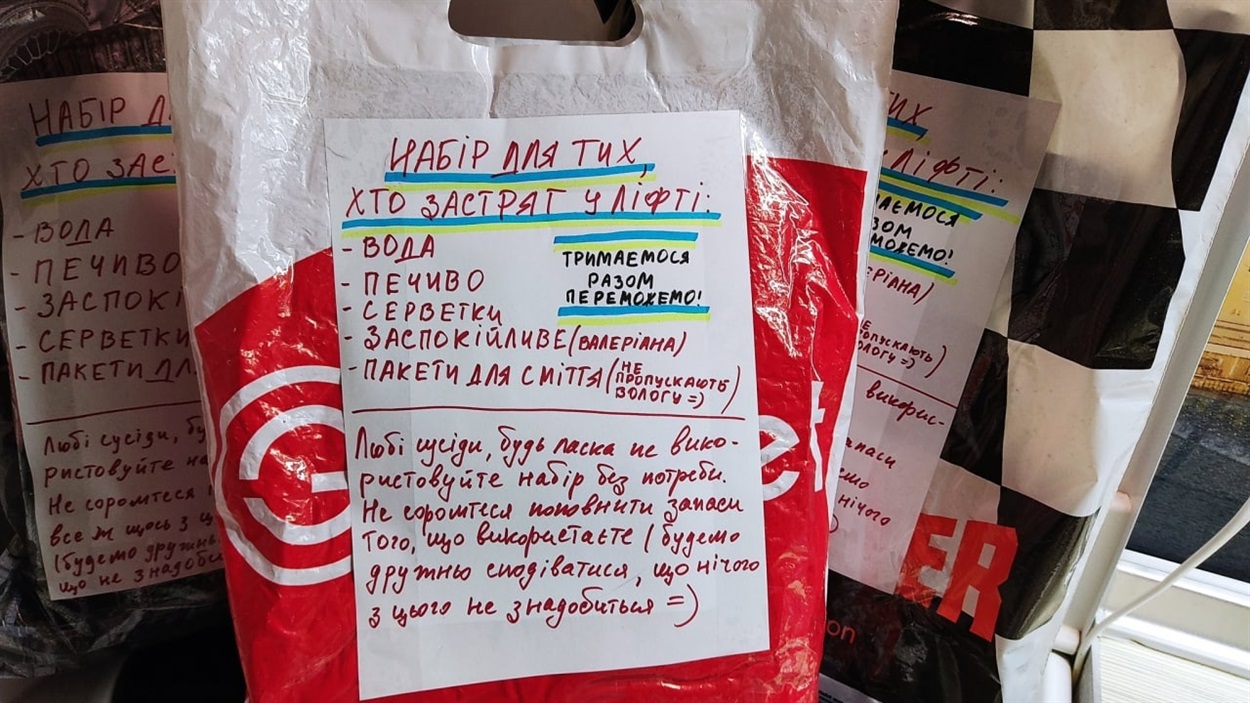 НАБІР Д
ХТО ЗАС
- ВОДА
- ПЕЧИВО
- ЗАСПОКІ
- СЕРВЕТКИ
- ПАКЕТИ ДЛ
Любі сусіди, бу
ристовуйте на
Не соромтеся
все ж щось з ц
(будемо дружнь
що не знадоби
НАБІР ДЛЯ ТИХ,
ХТО ЗАСТРЯГ У ЛІФТІ:
- ВОДА
- ПЕЧИВО
- СЕРВЕТКИ
- ЗАСПОКІЙЛИВЕ (ВАЛЕРІАНА)
- ПАКЕТИ ДЛЯ СМІТТЯ (НЕ
ПРОПУСКАЮТЬ
ВОЛОГУ =)
)
ТРИМАЕМОСЯ
РАЗОМ
ПЕРЕМОЖЕМО!
Любі сусіди, будь ласка не вико-
ристовуйте набір без потреби.
Не соромтеся поповнити запаси
того, що використаєте (будемо
дружньо сподіватися, що нічого
з цього не знадобиться =)
ТИХ,
ЛІФТІ:
АЄМОСЯ
ЗОМ
МОЖЕМО!
ЕРІАНА)
НЕ
ПРОПУСКАЮТЬ
ВОЛОГУ =)
)
викорис-
запаси
емо
нічого
)
et
ER
on